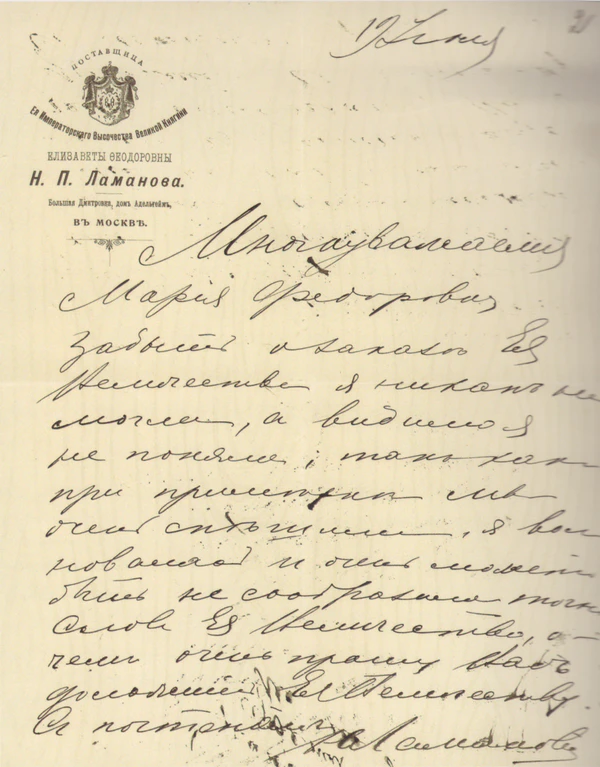 19 Июня
ПОСТАВЩИЦА
Ея Императорскаго Высочества Великой Княгини
ЕЛИЗАВЕТЫ ѲЕОДОРОВНЫ
Н. П. Ламанова.
Большая Дмитровка, домъ Адельгеймъ,
ВЪ МОСКВѢ.
Многоуважаемая
Марія Федоровна
Забыть о заказѣ Ея
Величества я никакъ не
могла, а видимо я
не поняла, такъ какъ
при примѣркѣ мы
очень спѣшили, я вол
новалась и очень можетъ
быть не сообразила точно
слова Ея Величества, о
чемъ очень прошу Васъ
доложить Ея Величеству.
Съ почтеніемъ
Н Ламанова